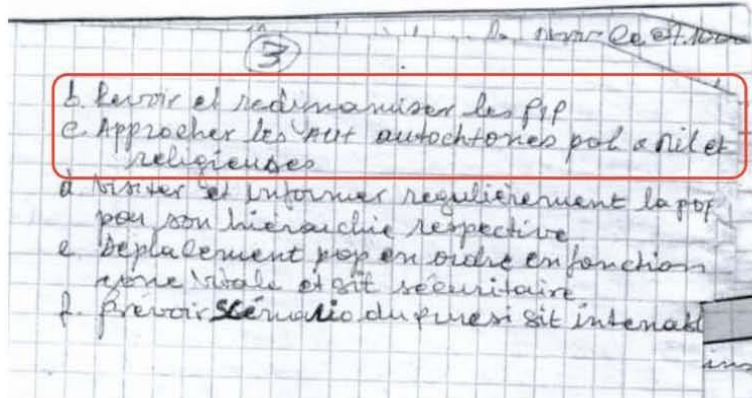 3
b. Revoir et redinamiser les PIP
c. Approcher les AUT autochtones pol a mil et
religieuses
d. Visiter et informer regulièrement la pop
par son hiérarchie respective
e. Déplacement pop en ordre en fonction
zone vitale et sit sécuritaire
f. Prévoir scénario du si sit intenabl